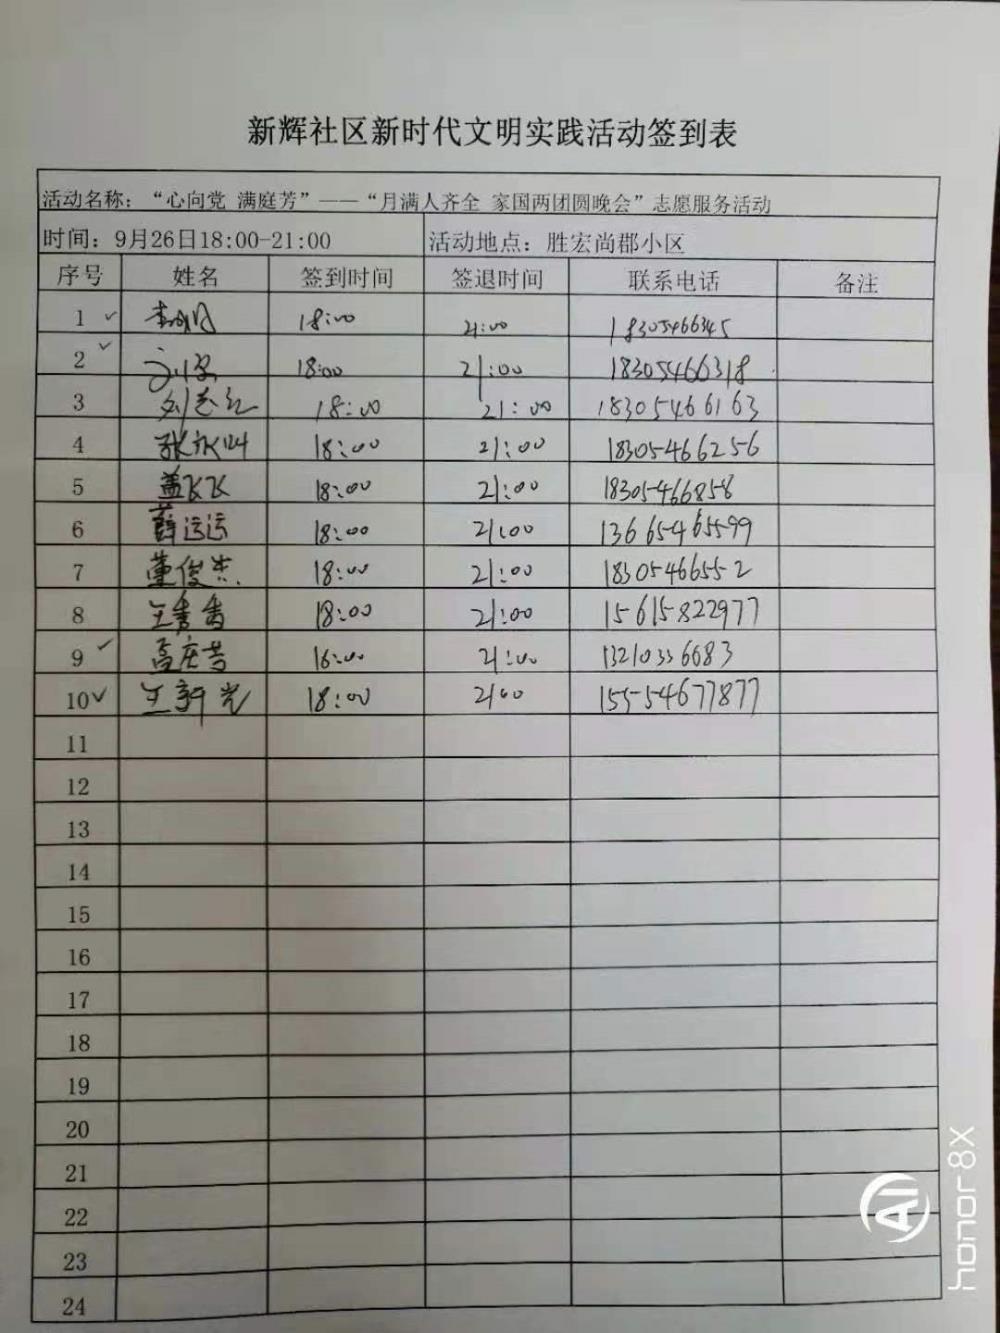 新辉社区新时代文明实践活动签到表
活动名称：“心向党 满庭芳”——“月满人齐全 家国两团圆晚会”志愿服务活动
时间：9月26日18:00-21:00 活动地点：胜宏尚郡小区
序号 姓名 签到时间 签退时间 联系电话 备注
1 18:00 21:00 18305466345
2 18:00 21:00 18305466318
3 刘志红 18:00 21:00 18305466163
4 18:00 21:00 18305466256
5 盖飞飞 18:00 21:00 18305466858
6 薛运运 18:00 21:00 13665465599
7 董俊杰 18:00 21:00 18305466552
8 王香香 18:00 21:00 15615822977
9 高庆芳 18:00 21:00 13210336683
10 王新光 18:00 21:00 15554677877
11
12
13
14
15
16
17
18
19
20
21
22
23
24
AI honor 8X